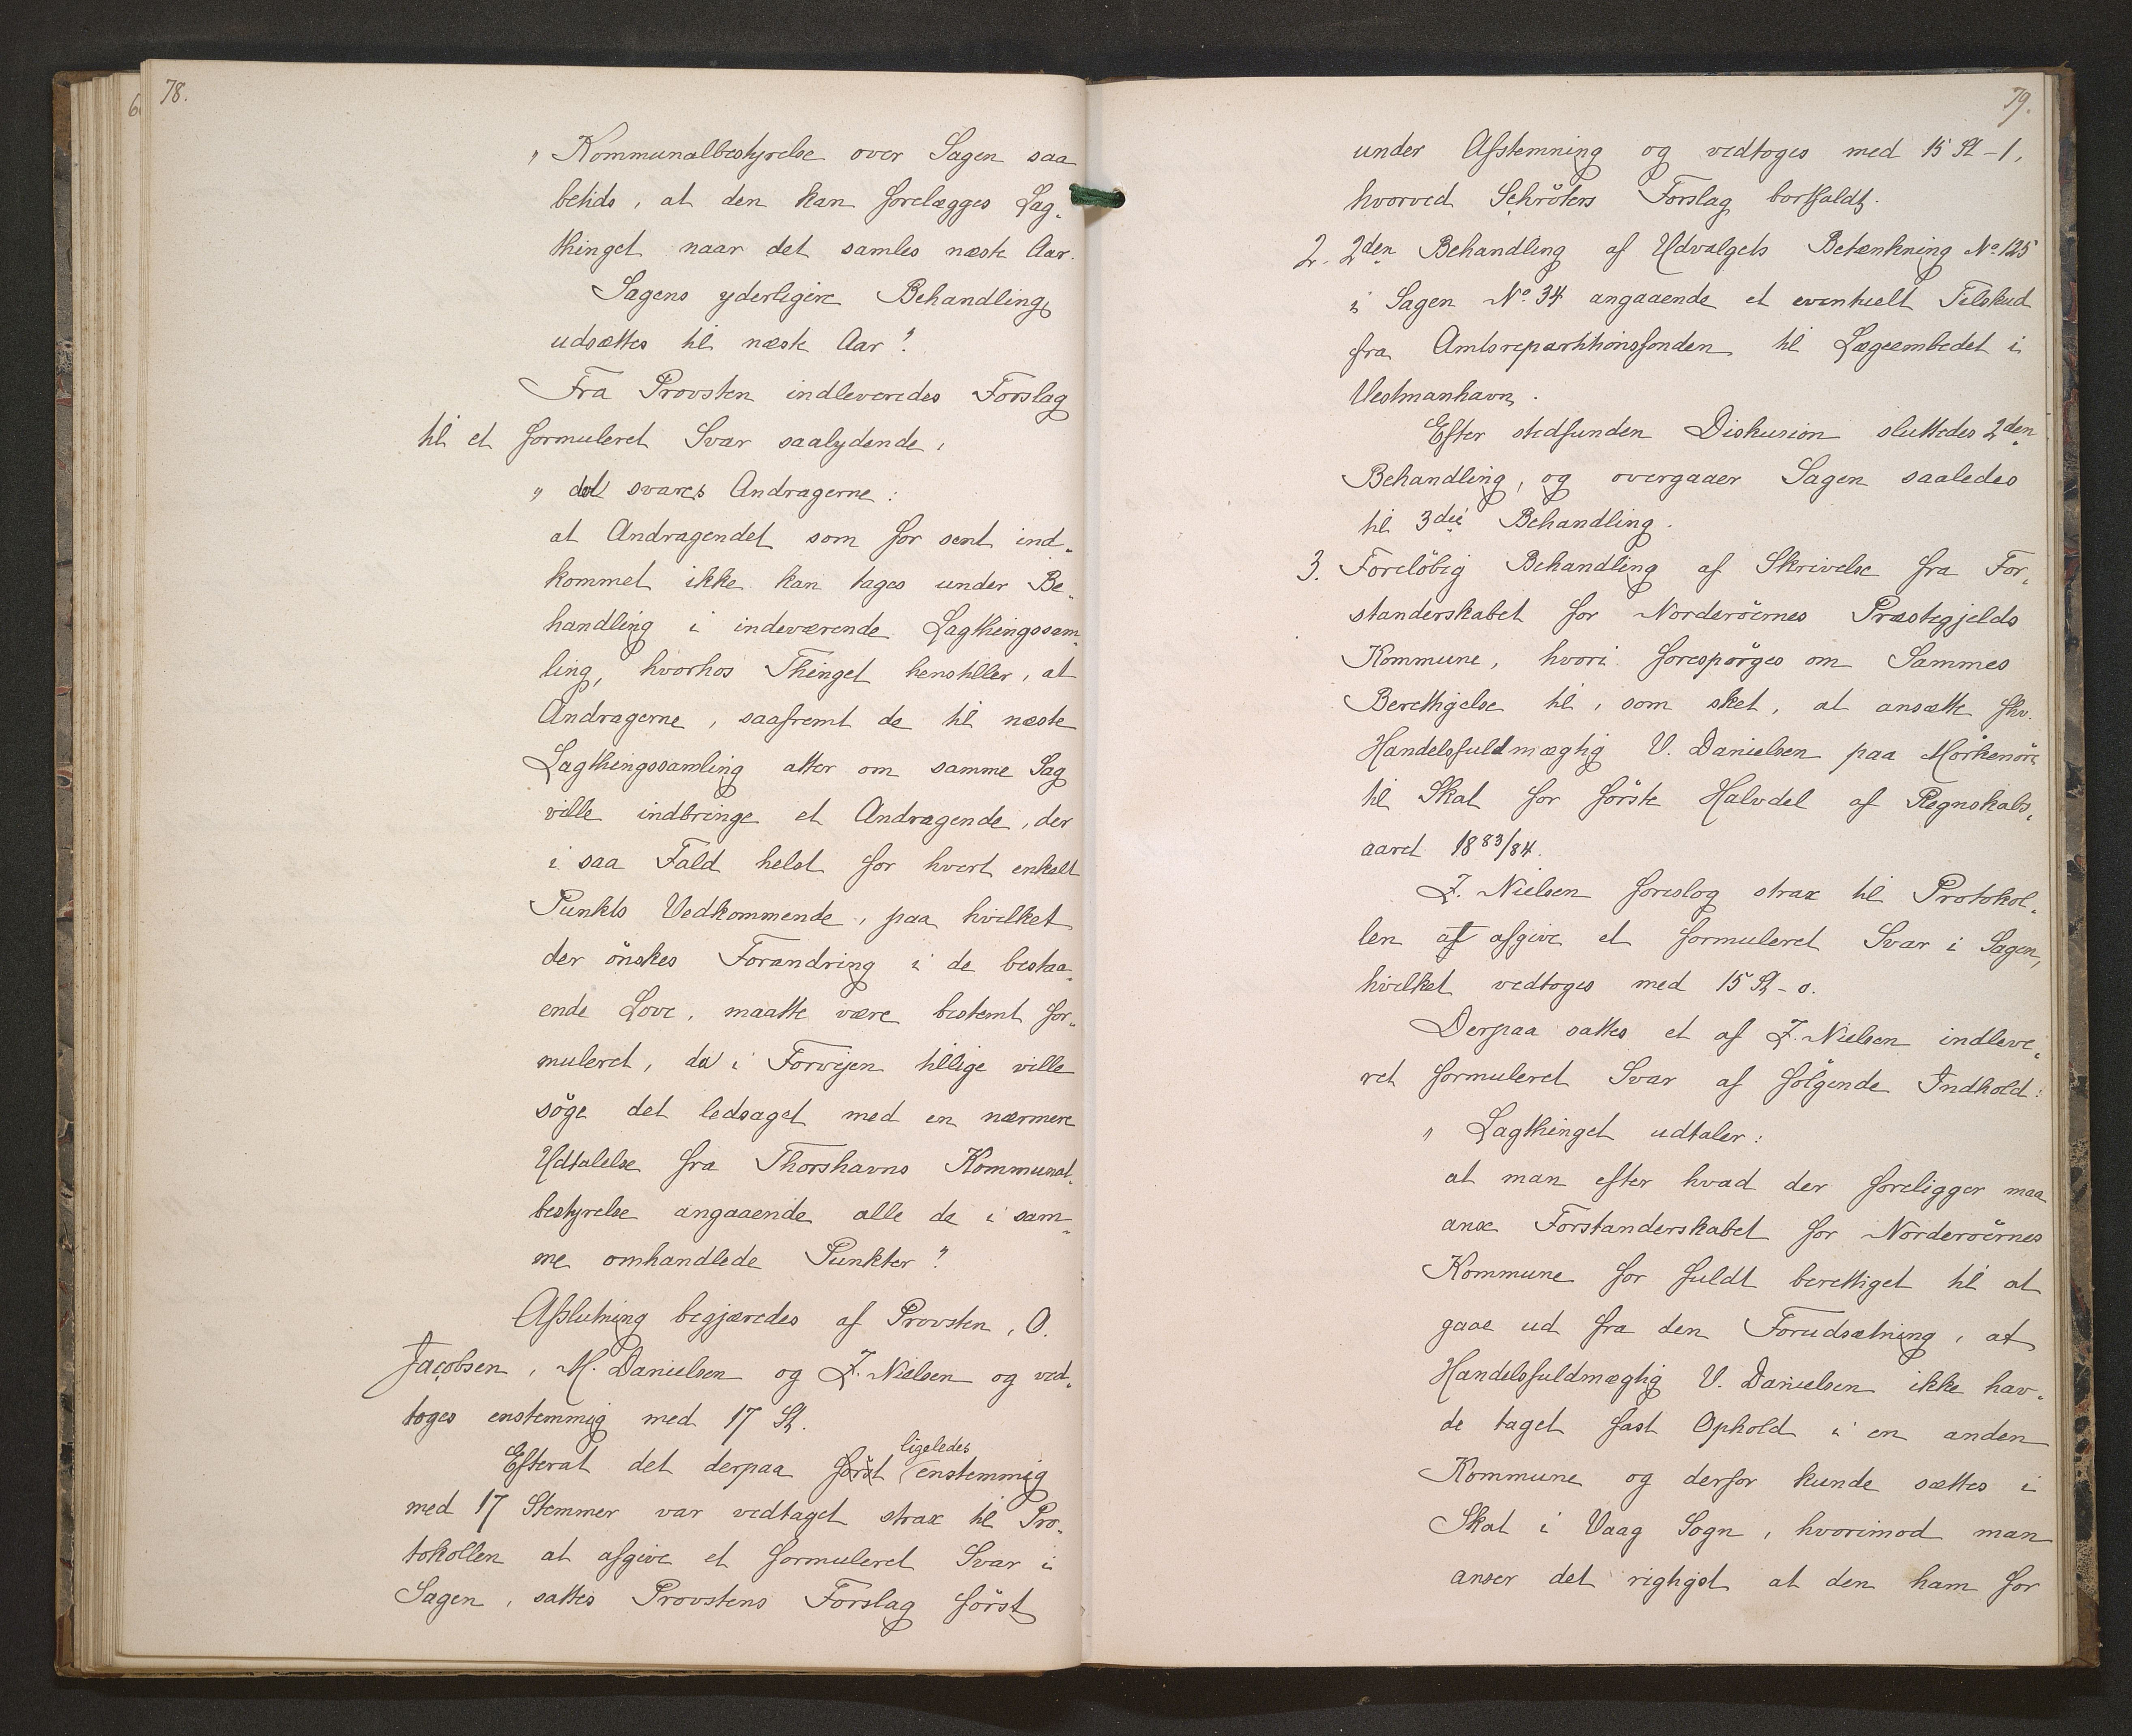 78.
„ Kommunalbestyrelse over Sagen saa
betids, at den kan forelægges Lag„
thinget naar det samles næste Aar.
Sagens yderligere Behandling
udsættes til næste Aar".
Fra Provsten indleveredes Forslag
til et formuleret Svar saalydende,
„ det svares Andragerne:
at Andragendet som for sent ind„
kommet ikke kan tages under Be„
handling i indeværende Lagthingssam„
ling, hvorhos Thinget henstiller, at
Andragerne, saafremt de til næste
Lagthingssamling atter om samme Sag
ville indbringe et Andragende, der
i saa Fald helst for hvert enkelt
Punkts Vedkommende, paa hvilket
der önskes Forandring i de bestaa„
ende Love, maatte være bestemt for„
muleret, da i Forvejen tillige ville
söge det ledsaget med en nærmere
Udtalelse fra Thorshavns Kommunal„
bestyrelse angaaende alle de i sam„
me omhandlede Punkter".
Afslutning begjæredes af Provsten, O.
Jacobsen, M. Danielsen og Z. Nielsen og ved„
toges enstemmig med 17 St.
ligeledes
Efterat det derpaa först enstemmig
med 17 Stemmer var vedtaget strax til Pro„
tokollen at afgive et formuleret Svar i
Sagen, sattes Provstens Forslag först
79.
under Afstemning og vedtoges med 15 St - 1,
hvorved Schröters Forslag bortfaldt.
2. 2den Behandling af Udvalgets Betænkning No 125
i Sagen No 34 angaaende et eventuelt Tilskud
fra Amtsrepartitionsfonden til Lægeembedet i
Vestmanhavn.
Efter stedfunden Diskusion sluttedes 2den
Behandling, og overgaaer Sagen saaledes
til 3die Behandling.
3. Forelöbig Behandling af Skrivelse fra For„
standerskabet for Norderöernes Præstegjelds
Kommune, hvori forespörges om Sammes
Berettigelse til, som sket, at ansætte fhv.
Handelsfuldmægtig V. Danielsen paa Mörkenöre
til Skat for förste Halvdel af Regnskabs„
aaret 1883/84.
Z. Nielsen foreslog strax til Protokol„
len at afgive et formuleret Svar i Sagen,
hvilket vedtoges med 15 St - 0.
Derpaa sattes et af Z. Nielsen indleve„
ret formuleret Svar af fölgende Indhold:
„ Lagthinget udtaler:
at man efter hvad der foreligger maa
anse Forstanderskabet for Norderöernes
Kommune for fuldt berettiget til at
gaae ud fra den Forudsætning, at
Handelsfuldmægtig V. Danielsen ikke hav„
de taget fast Ophold i en anden
Kommune og derfor kunde sættes i
Skat i Vaag Sogn, hvorimod man
anser det rigtigst at den ham for